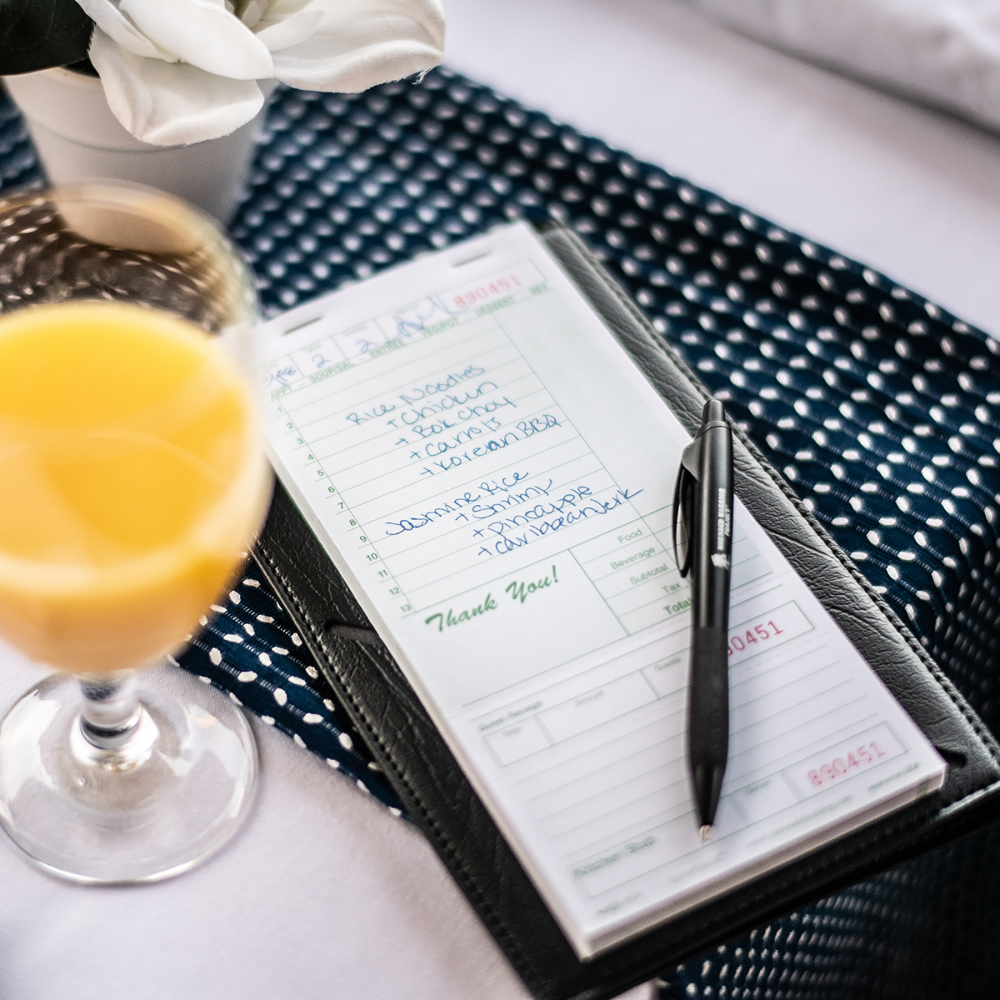 890451
2 2
APPT - SOUP/SAL - ENTREE - VEG/POT - DESSERT - BEV
1
2 Rice Noodles
3 + Chicken
4 + Bok Choy
5 + Carrots
6 + Korean BBQ
7
8 Jasmine Rice
9 + Shrimp
10 + pineapple
11 + caribbean jerk
12
13
Food
Beverage
Subtotal
Tax
Total
Thank You!
Guest Receipt
Date
Amount
Guests
890451